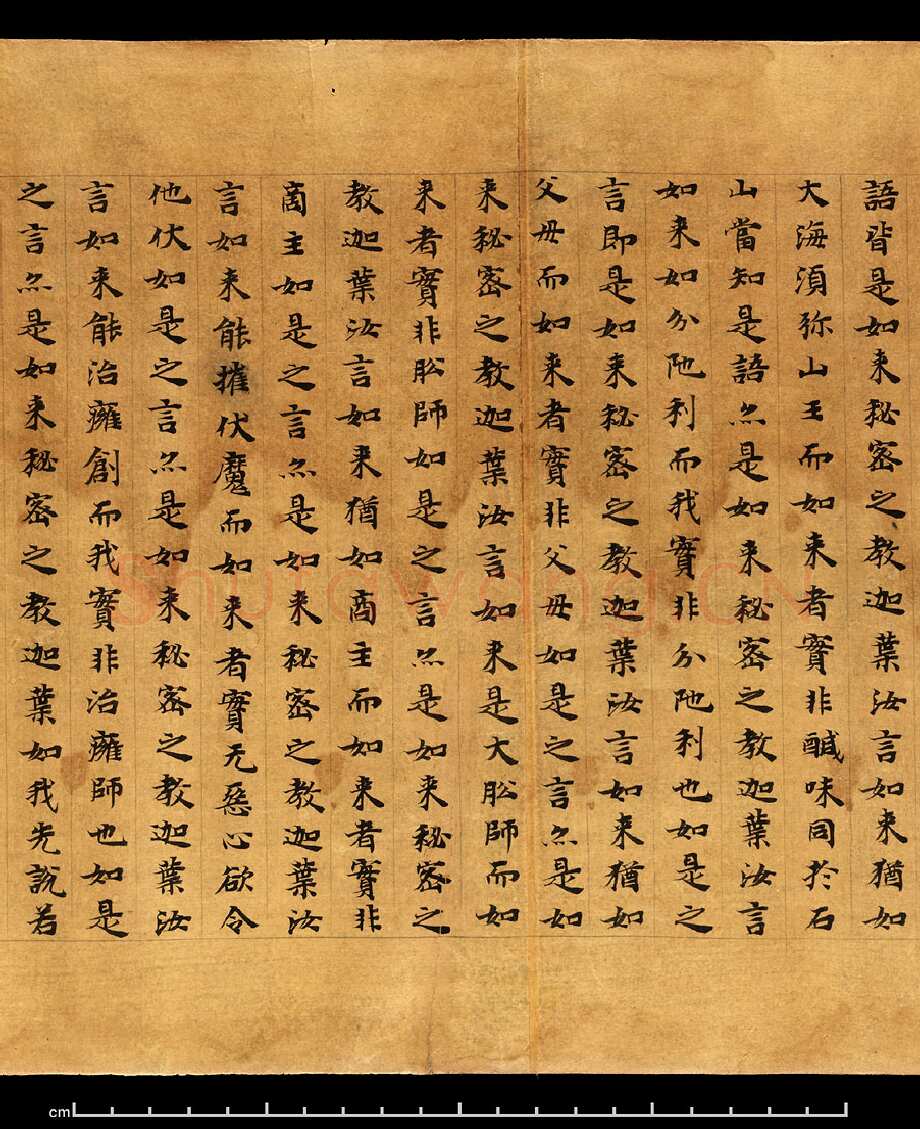 語皆是如来秘密之教迦葉汝言如来猶如
大海須弥山王而如来者實非醎味同於石
山當知是語亦是如来秘密之教迦葉汝言
如来如分陁利而我實非分陁利也如是之
言即是如来秘密之教迦葉汝言如来猶如
父母而如来者實非父母如是之言亦是如
来秘密之教迦葉汝言如来是大舩師而如
来者實非舩師如是之言亦是如来秘密之
教迦葉汝言如来猶如商主而如来者實非
商主如是之言亦是如来秘密之教迦葉汝
言如来能摧伏魔而如来者實无惡心欲令
他伏如是之言亦是如来秘密之教迦葉汝
言如来能治癰創而我實非治癰師也如是
之言亦是如来秘密之教迦葉如我先說若
shufawang.CN
cm